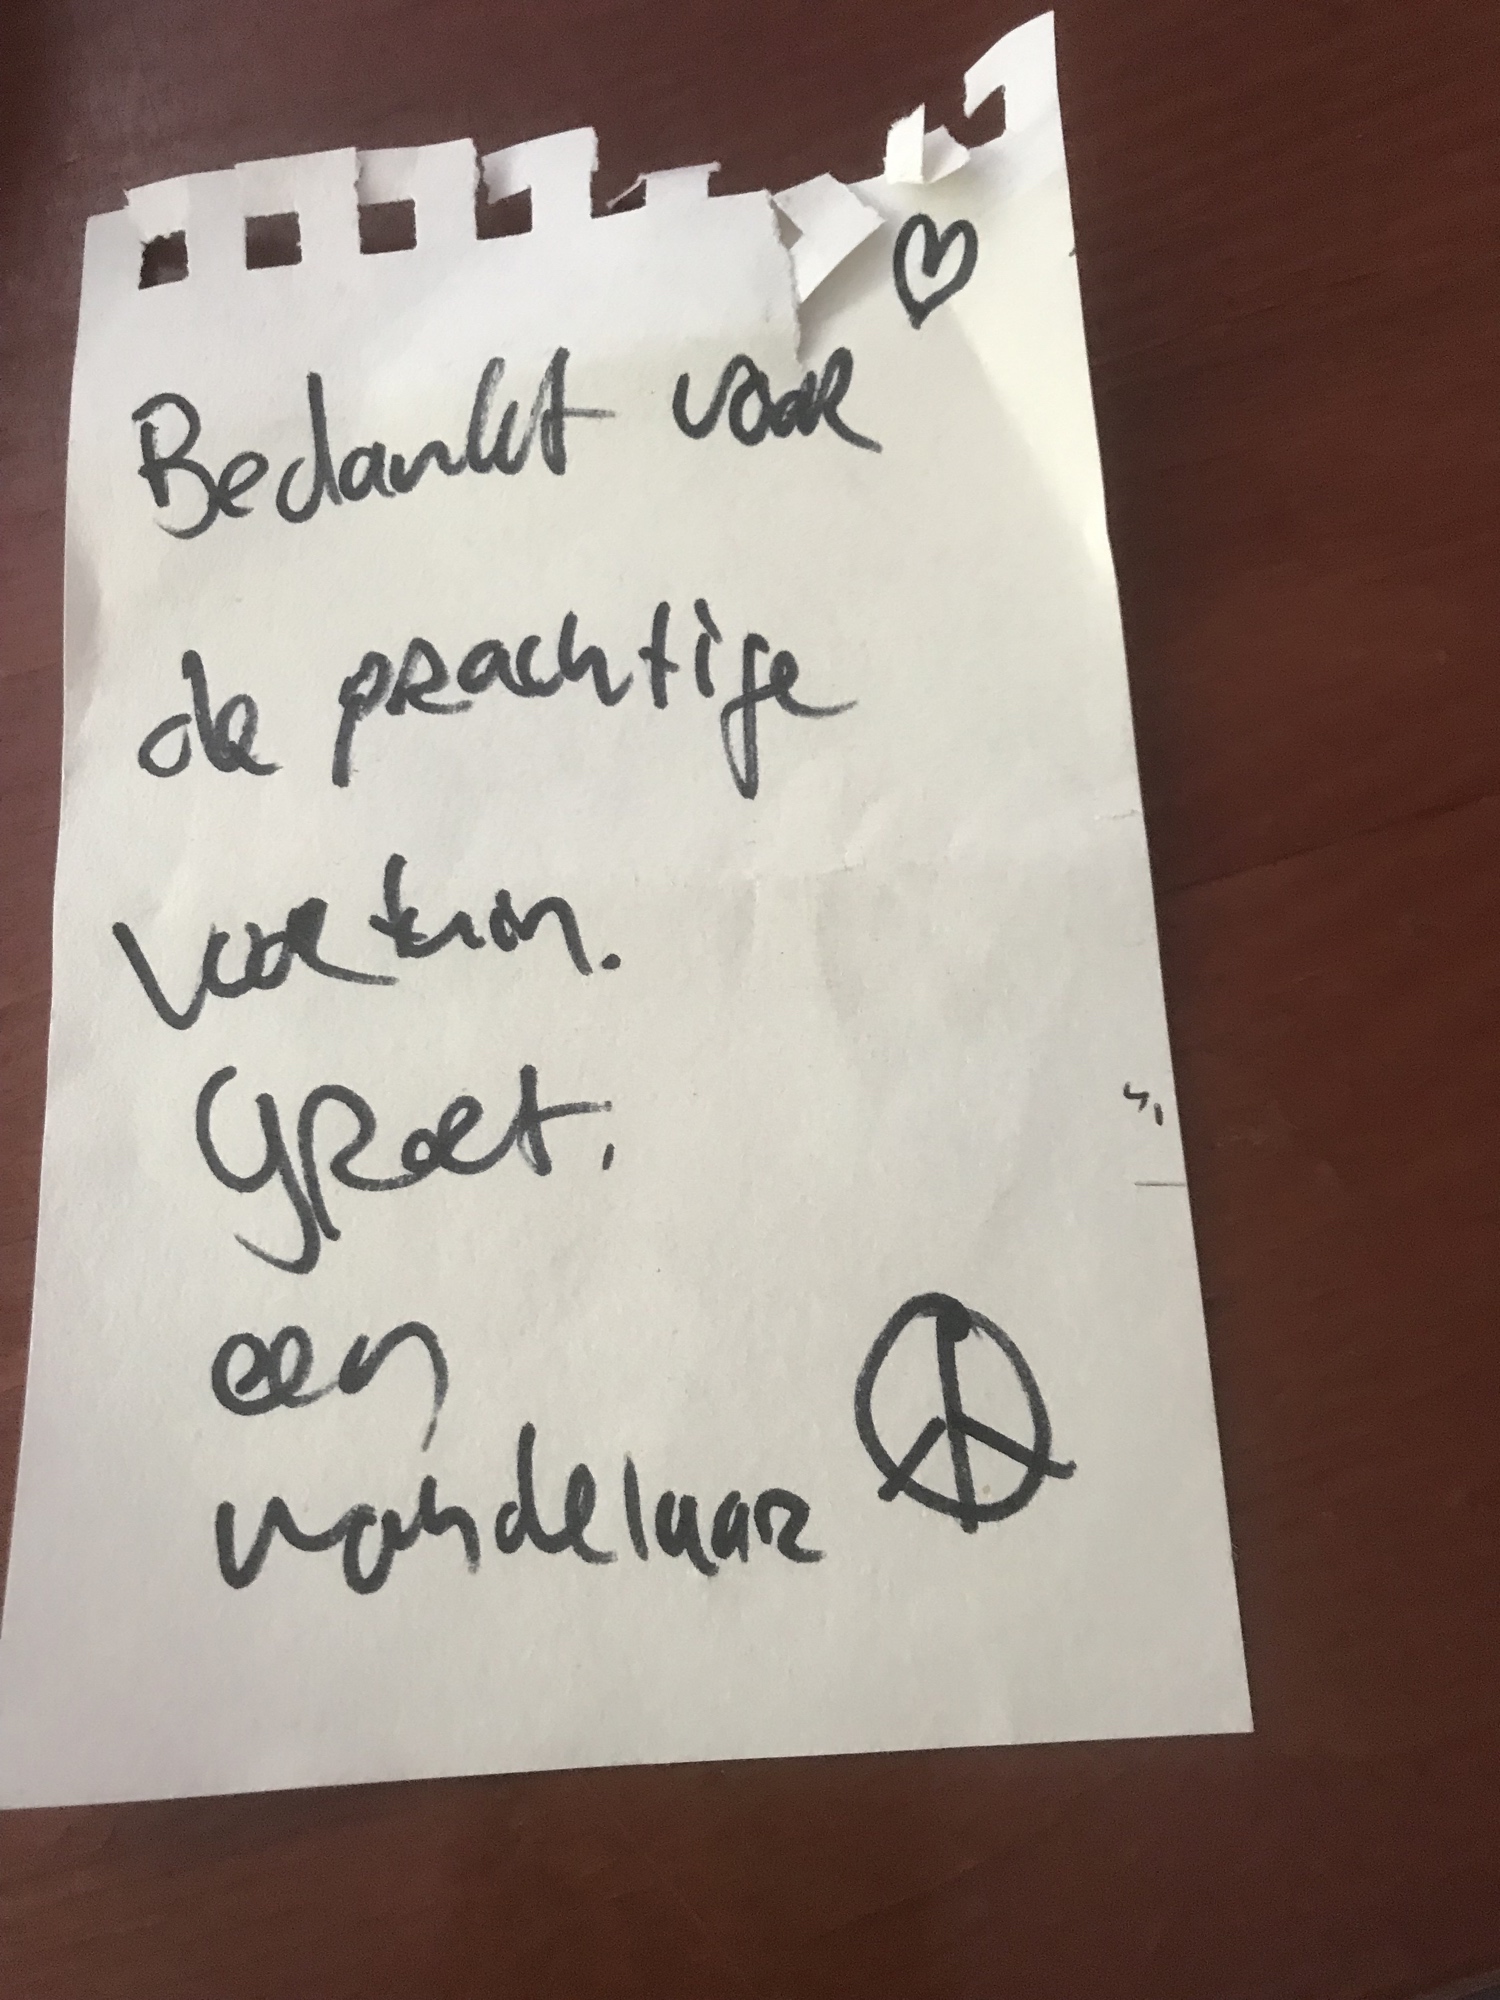 Bedankt voor
de prachtige
voortuin.
Groet,
een
wandelaar